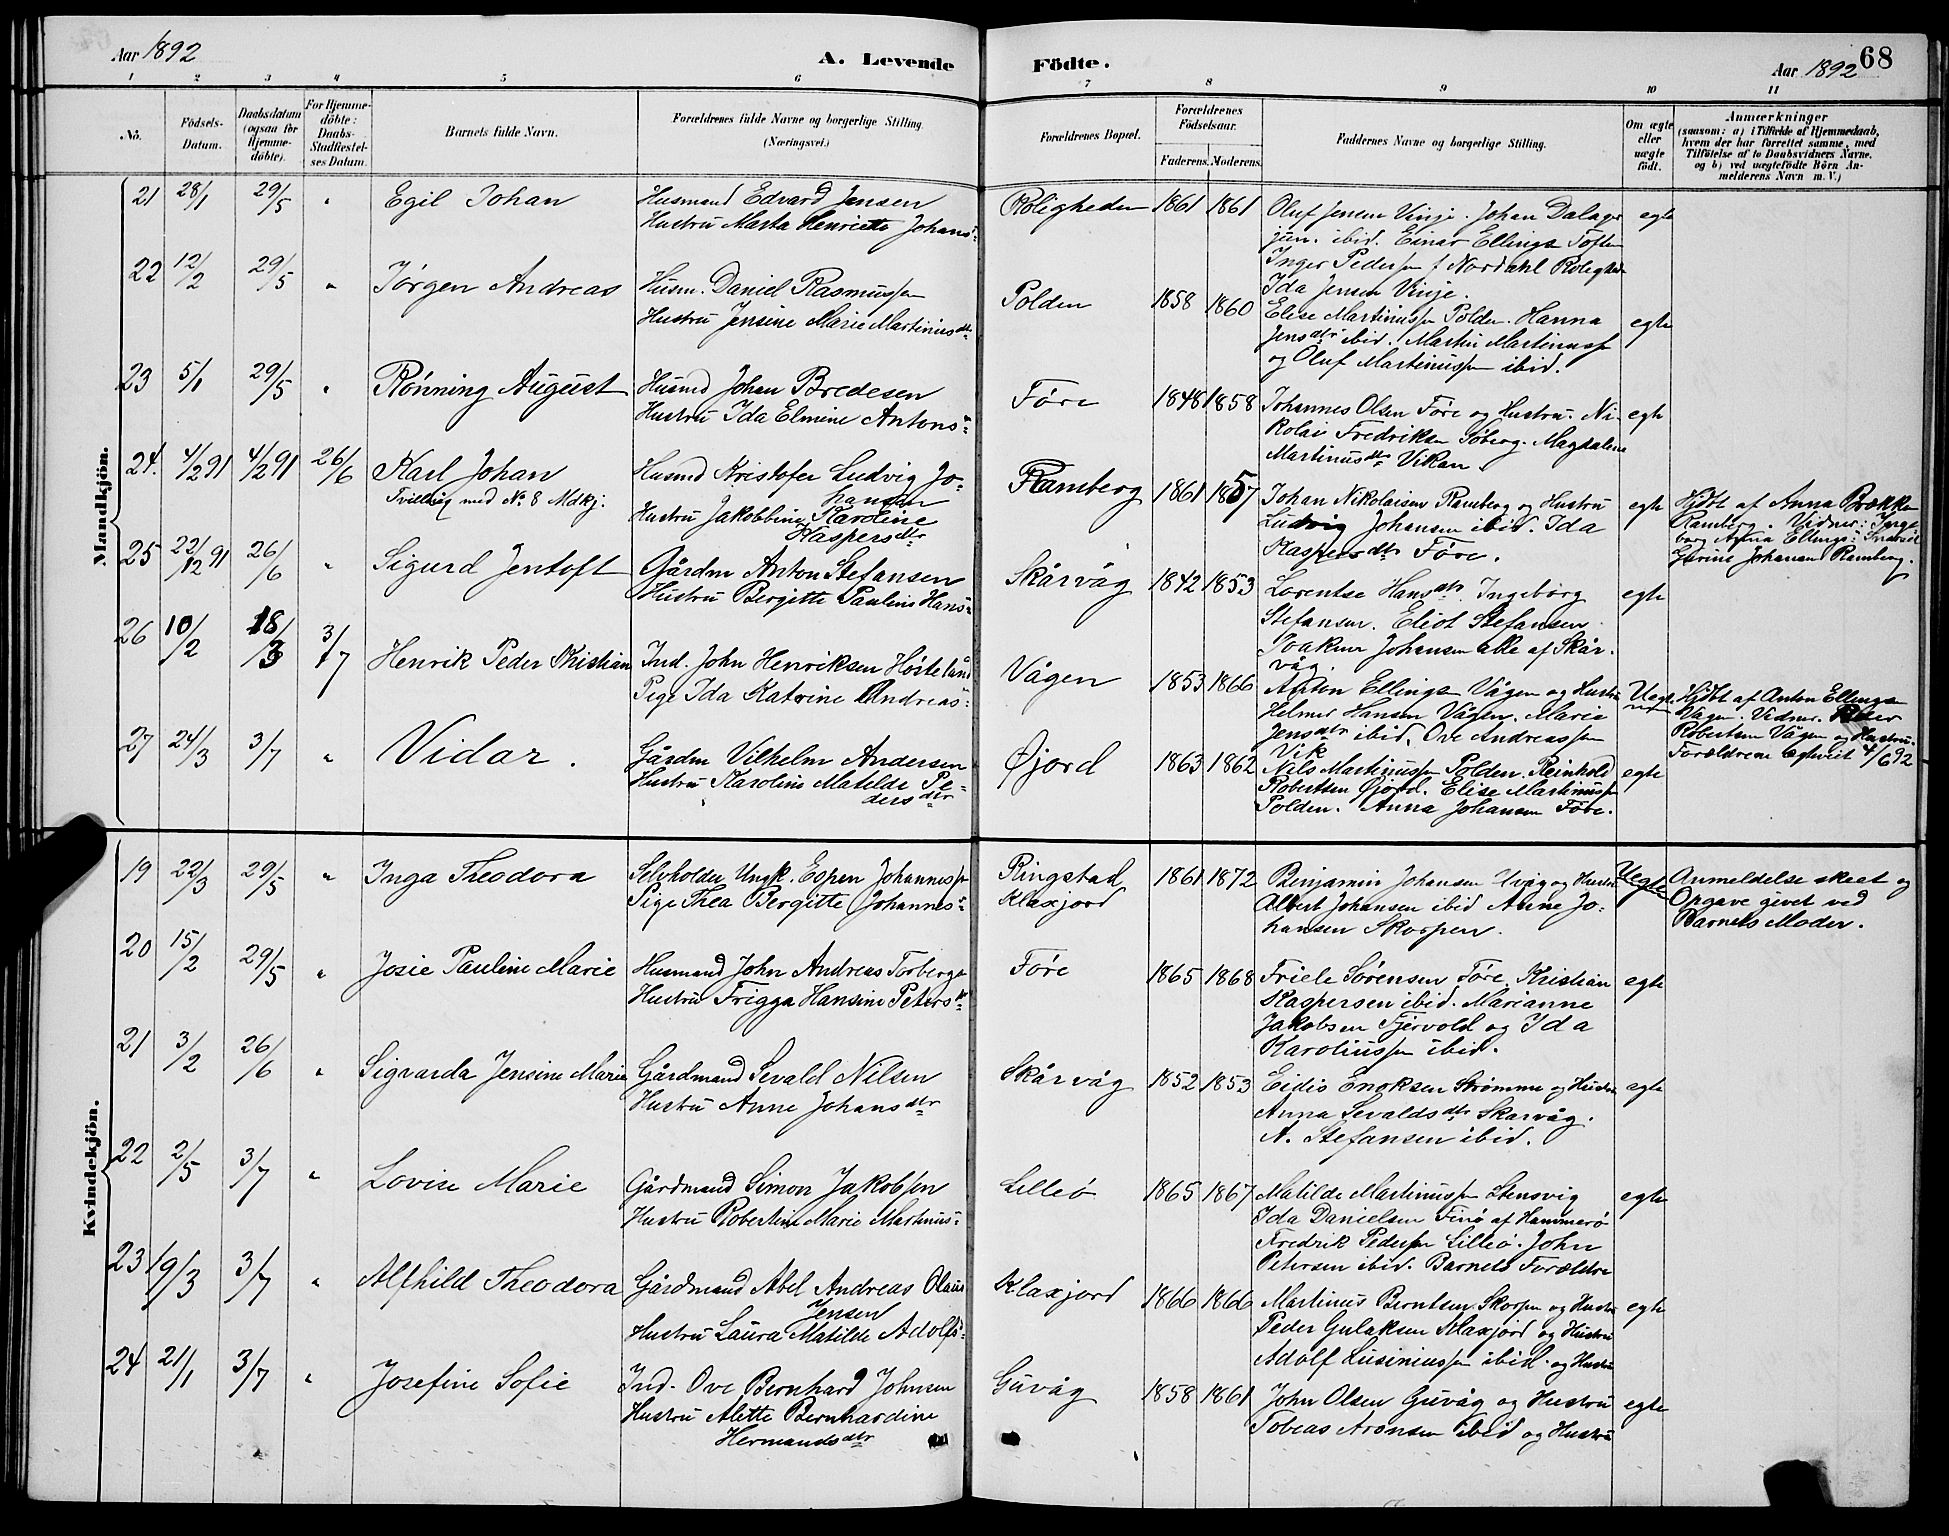 Aar 1892
A. Levende Födte.
Aar 1892
68
1 2 3 4 5 6 7 8 9 10 11
No.
Födsels-Datum.
Daabsdatum (ogsaa for Hjemme-döbte).
For Hjemme-döbte: Daabs-Stadfæstel-ses Datum.
Barnets fulde Navn.
Forældrenes fulde Navne og borgerlige Stilling. (Næringsvei.)
Forældrenes Bopæl.
Forældrenes Födselsaar.
Faderens. Moderens.
Faddernes Navne og borgerlige Stilling.
Om ægte eller uægte födt.
Anmærkninger
(saasom: a) i Tilfælde af Hjemmedaab, hvem der har forrettet samme, med Tilföielse af to Daabsvidners Navne, og b) ved uægtefödte Börn An-melderens Navn m. V.)
Mandkjön.
21 28/1 29/5 " Egil Johan
Husmand Edvard Jensen
Hustru Marta Henriette Johans:
Roligheden 1861 1861
Oluf Jensen Vinje. Johan Dalager
jun. ibid. Einar Ellings Toften
Inger Pedersen f Nordahl Roligheden
Ida Jensen Vinje.
egte
22 12/2 29/5 " Jørgen Andreas
Husm. Daniel Rasmussen
Hustru Jensine Marie Martinusdtr
Polden 1858 1860
Elise Martinussen Polden. Hanna
Jensdtr ibid. Martin Martinussen
og Oluf Martinussen ibid.
egte
23 5/1 29/5 " Rønning August
Husmd Johan Bredesen
Hustru Ida Elmine Antons:
Føre 1848 1858
Johannes Olsen Føre og Hustru. Ni-
kolai Fredriksen Søberg. Magdalena
Martinusdtr Vikan.
egte
24. 4/2 91 4/2 91 26/6 Karl Johan
Tvilling med No 8 Mdkj.
Husmd Kristofer Ludvig Jo-
hansen
Hustru Jakobbine Karoline
Kaspersdtr
Ramberg 1861 1857
Johan Nikolaisen Ramberg og Hustru
Ludvig Johansen ibid. Ida
Kaspersdtr Føre.
egte
Hjdbt af Anna Brækka
Ramberg. Vidner: Inge-
borg Anna Ellings:
Gurine Johansen Ramberg.
25 22/12 91 26/6 " Sigurd Jentoft
Gårdm Anton Stefansen
Hustru Bergitte Pauline Hans:
Skårvåg 1842 1853
Lorentse Hansdtr. Ingeborg
Stefansen. Eliot Stefansen
Joakim Johansen alle af Skår-
våg.
egte
26 10/2 18/3 3/7 Henrik Peder Kristian
Ind. John Henriksen Hørteland
Pige Ida Katrine Andreas:
Vågen 1853 1866
Anton Ellings Vågen og Hustru
Helmer Hansen Vågen. Marie
Jensdtr ibid. Ove Andreassen
Vik
Uegte
Hjdbt af Anton Ellings
Vågen. Vidner. Peder
Robertsen Vågen og Hustru.
Forældrene egteviet 4/6 92
27 24/3 3/7 " Vidar.
Gårdm Vilhelm Andersen
Hustru Karoline Matilde Pe-
dersdtr
Øjord 1863 1862
Nils Martinussen Polden. Reinhold
Robertsen Øjord. Elise Martinussen
Polden. Anna Johansen Føre.
egte
Kvindekjön.
19 22/3 29/5 " Inga Theodora
Selvholder Ungk. Espen Johannessen
Pige Thea Bergitte Johannes:
Ringstad
Klaxjord
1861 1872
Benjamin Johansen Utvig og Hustru
Albert Johansen ibid Anne Jo-
hansen Skorpen.
Uegte
Anmeldelse skeet og
Opgave givet ved
Barnets Moder.
20 15/2 29/5 " Josie Pauline Marie
Husmand John Andreas Torbergs
Hustru Frigga Hansine Petersdtr
Føre 1865 1868
Friele Sørensen Føre. Kristian
Kaspersen ibid. Marianne
Jakobsen Fjervold og Ida
Karoliussen ibid.
egte
21 3/2 26/6 " Sigvarda Jensine Marie
Gårdmand Sevald Nilsen
Hustru Anne Johansdtr
Skårvåg 1852 1853
Eidis Enoksen Strømme og Hustru
Anna Sevaldsdtr Skarvåg.
A. Stefansen ibid.
egte
22 2/5 3/7 " Lovise Marie
Gårdmand Simon Jakobsen
Hustru Robertine Marie Martinus:
Lilleø 1865 1867
Matilde Martinussen Stensvig
Ida Danielsen Finø af Hammerø
Fredrik Pedersen Lilleø. John
Petersen ibid. Barnets Forældre
egte
23 19/3 3/7 " Alfhild Theodora
Gårdmand Abel Andreas Olaus
Jensen
Hustru Laura Matilde Adolfs:
Klaxjord 1866 1866
Martinus Berntsen Skorpen og Hustru
Peder Gulaksen Klaxjord og Hustru
Adolf Lusiniussen ibid. og Hustru
egte
24 21/1 3/7 " Josefine Sofie
Ind. Ove Bernhard Johnsen
Hustru Alette Bernhardine
Hermandsdtr
Guvåg 1858 1861
John Olsen Guvåg og Hustru
Tobias Aronsen ibid og Hustru
egte